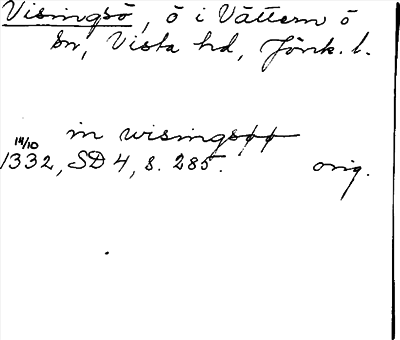 Visingsö, ö i Vättern ö
sn, Vista hd, Jönk. l.
in wisingsøø
14/10
1332, SD 4, s. 285. orig.